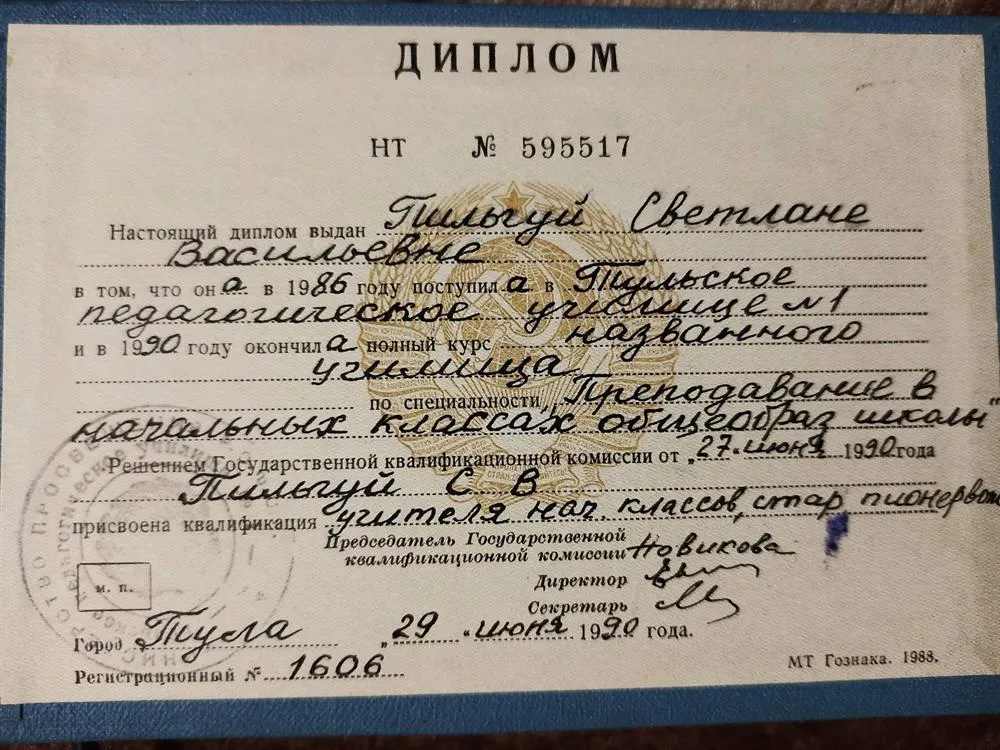 ДИПЛОМ
НТ № 595517
Настоящий диплом выдан Пильгуй Светлане
Васильевне
в том, что она в 1986 году поступила в Тульское
педагогическое училище №1
и в 1990 году окончила полный курс названного
училища
по специальности „Преподавание в
начальных классах общеобраз школы"
Решением Государственной квалификационной комиссии от „27" июня 1990 года
Пильгуй С В
присвоена квалификация учителя нач. классов, стар пионервож
Председатель Государственной
квалификационной комиссии Новикова
Директор
Секретарь
м. п.
Город Тула „29" июня 1990 года.
Регистрационный № 1606
МТ Гознака. 1988.